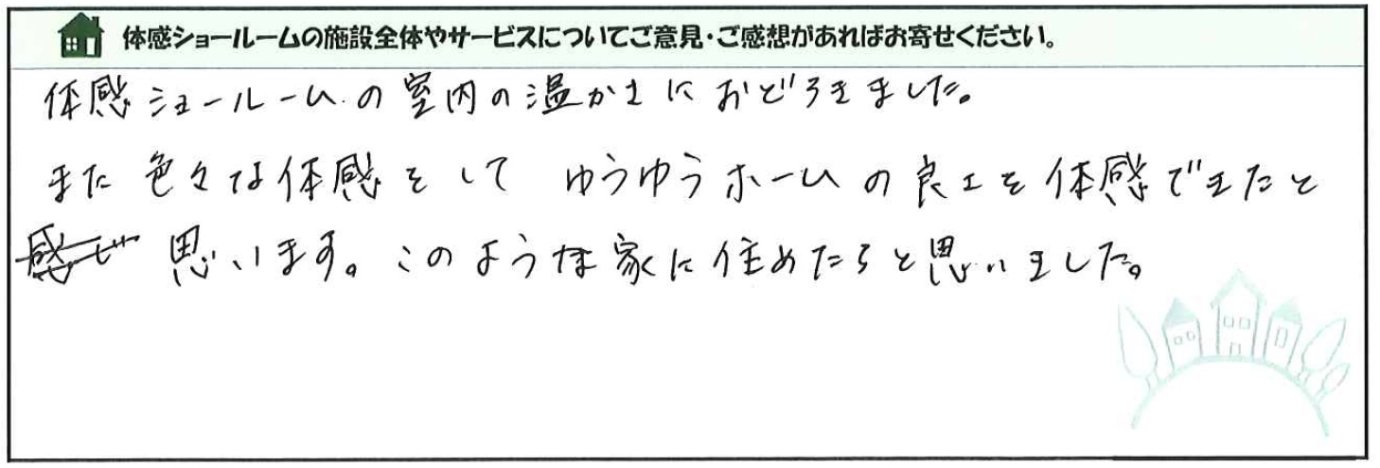 体感ショールームの施設全体やサービスについてご意見・ご感想があればお寄せください。
体感ショールームの室内の温かさにおどろきました。
また色々な体感をして ゆうゆうホームの良さを体感できたと
感じ 思います。このような家に住めたらと思いました。